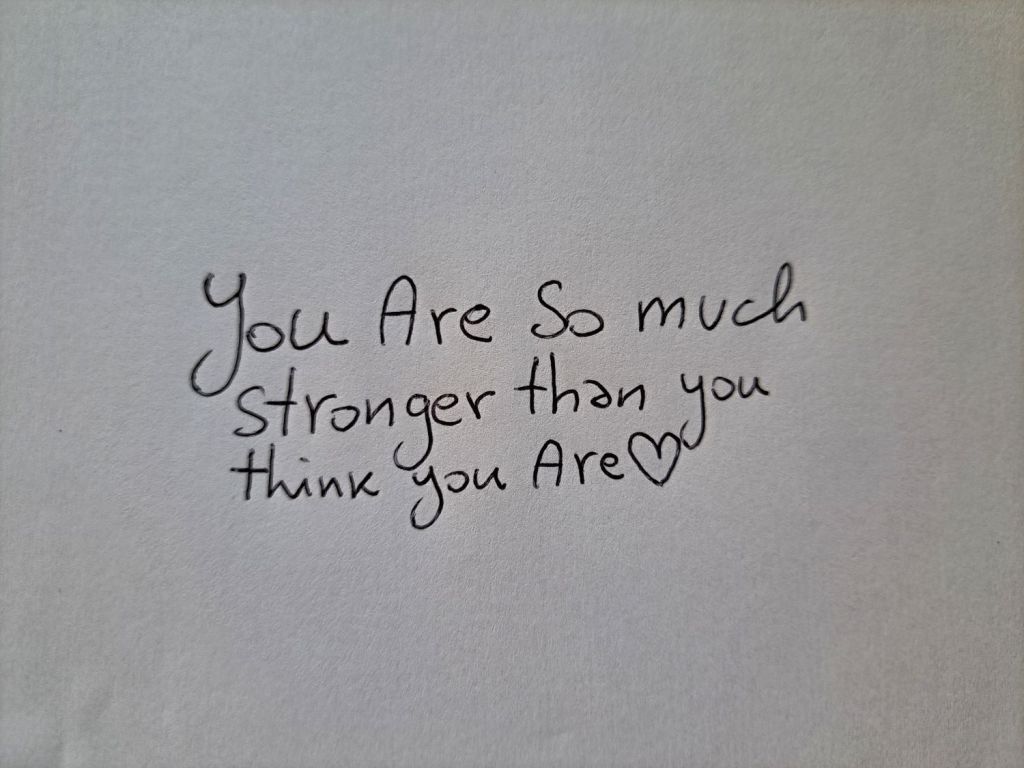 You Are So much
stronger than you
think you Are♡